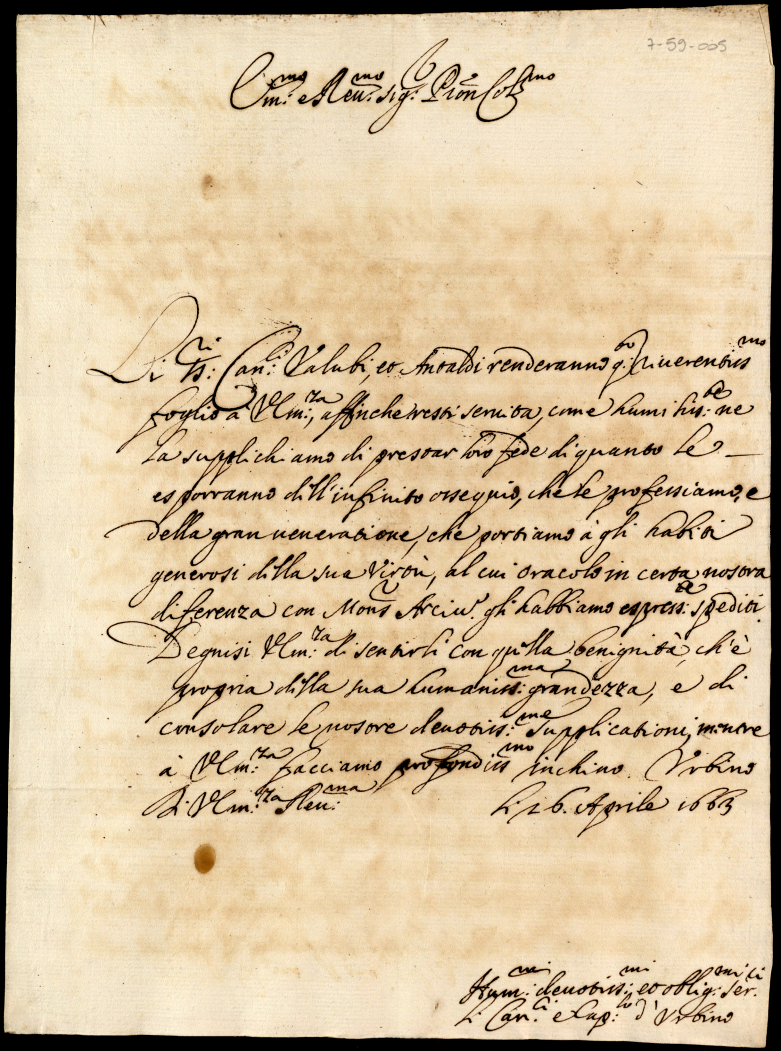 7-59-005
Em:mo e Reu:mo sig:r Pron Col:mo
Li SS:ri Can:ci Valubi, et Antaldi renderanno q:to riuerentiss:mo
foglio à V Em:za, affinche resti seruita, come humiliss:te ne
la supplichiamo di prestar loro fede di quanto le
esporranno dell'infinito ossequio, che le professiamo, e
della gran ueneratione, che portiamo à gli habiti
generosi della sua Virtù, al cui oracolo in certa nostra
diferenza con Mons:r Arciu:o gli habbiamo espress:te spediti.
Degnisi V Em:za di sentirli con quella benignità, ch'è
propria della sua humaniss:ma grandezza, e di
consolare le nostre deuotiss:me supplicationi, mentre
à V Em:za facciamo profondiss:mo inchino. Vrbino
Di V Em:za Reu:ma li 26. Aprile 1663
Hum:mi deuotiss:mi et oblig:mi ser:ri
Li Can:ci e Cap:lo d'Vrbino